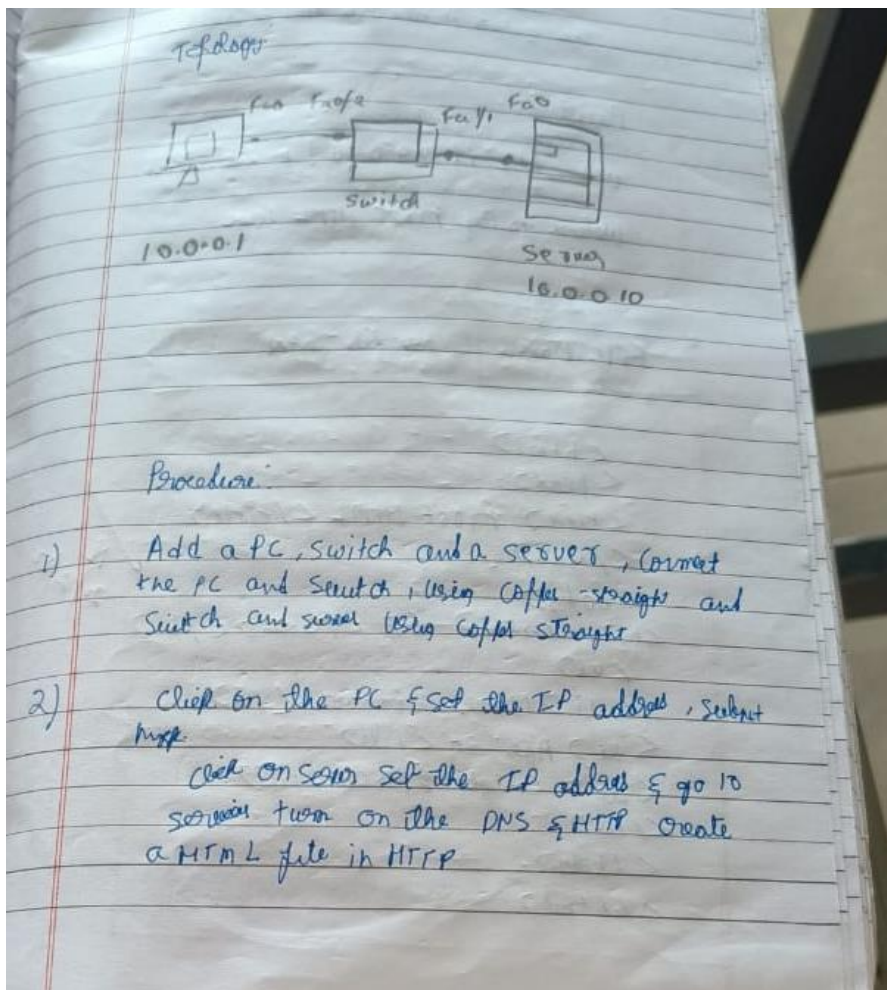 Topology
Fa0 Fa0/2 Fa1/1 Fa0
switch
10.0.0.1
Server
10.0.0.10
Procedure:
1) Add a PC, switch and a server, Connect
the PC and Switch, using Copper-straight and
Switch and server using Copper straight
2) Click on the PC & set the IP address, subnet
mask.
click on server set the IP address & go to
services turn on the DNS & HTTP create
a HTML file in HTTP